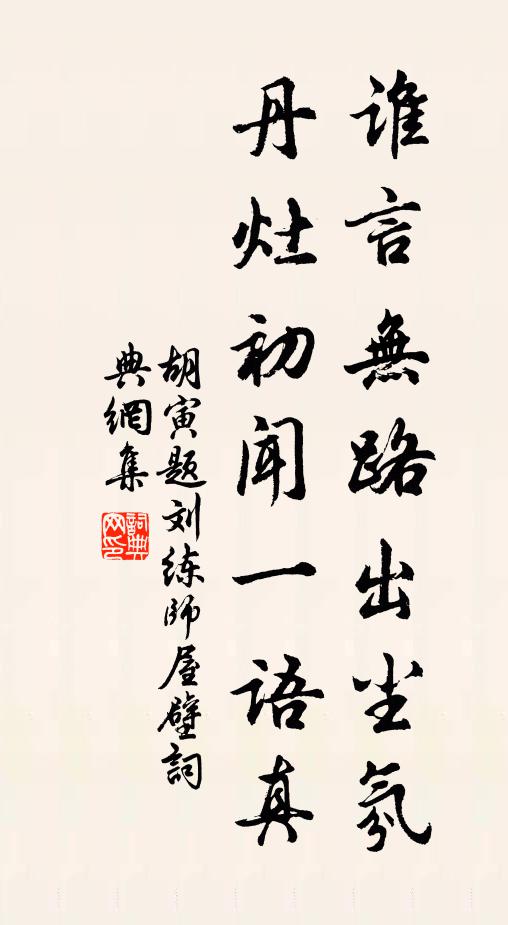 谁言無路出尘氛
丹灶初闻一语真
胡寅题刘练师屋壁詞
典網集
詞典网印